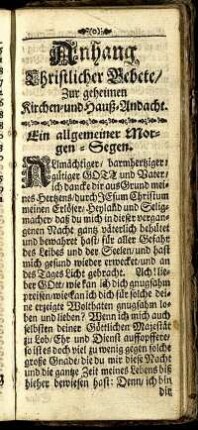 (0)
Anhang
Christlicher Gebete/
Zur geheimen
Kirchen- und Hauß-Andacht.
Ein allgemeiner Mor-
gen-Segen.
ALmächtiger/ barmhertziger/
gütiger GOTT und Vater/
ich dancke dir aus Grund mei-
nes Hertzens/ durch JEsum Christum
meinen Erlöser/ Heyland und Selig-
macher/ daß du mich in dieser vergan-
genen Nacht gantz väterlich behütet
und bewahret hast/ für aller Gefahr
des Leibes und der Seelen/ und hast
mich gesund wieder erwecket/ und an
des Tages Licht gebracht. Ach! lie-
ber GOtt/ wie kan ich dich gnugsahm
preisen/ wie kan ich dich für solche dei-
ne erzeigte Wolthaten gnugsahm lo-
ben und lieben? Wenn ich mich auch
selbsten deiner Göttlichen Majestät
zu Lob/ Ehr und Dienst auffopfferte/
so ist es doch viel zu wenig gegen solche
grosse Gnade/ die du mir diese Nacht
und die gantze Zeit meines Lebens biß
hieher bewiesen hast: Denn/ ich bin